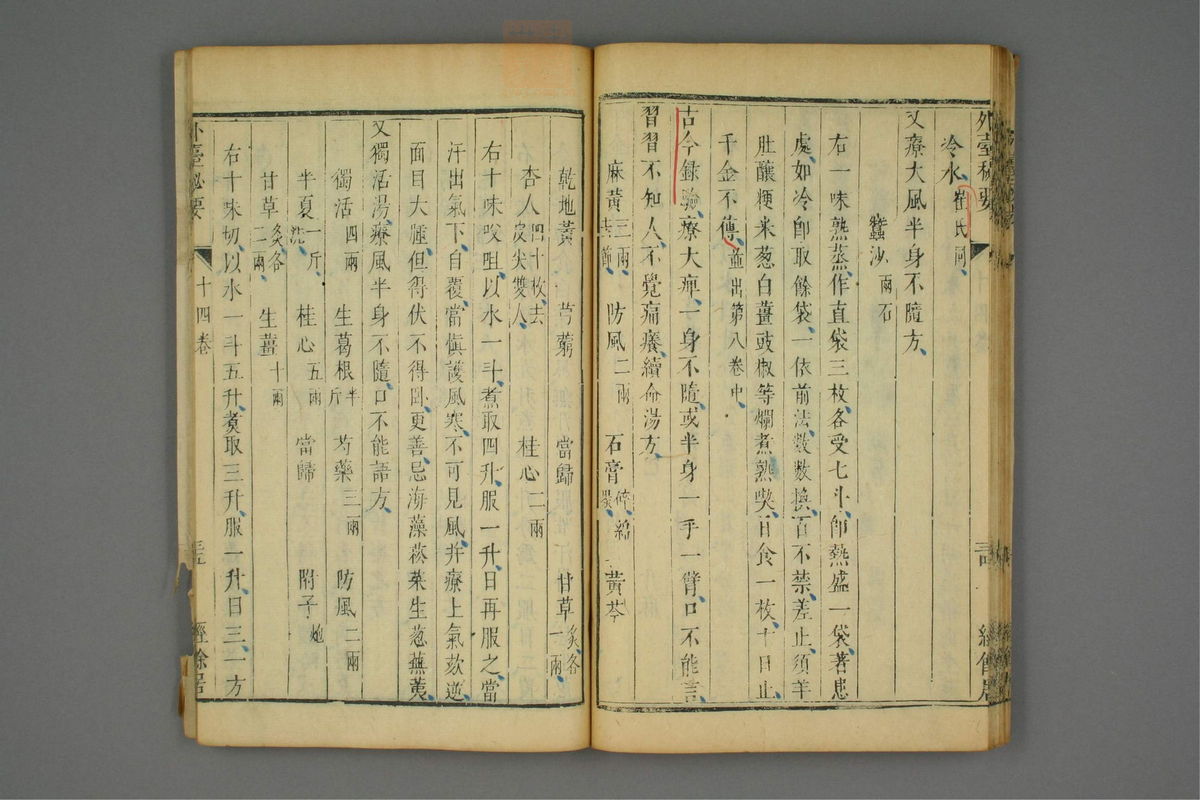 外臺秘要
冷水崔氏同
又療大風半身不隨方
蠶沙兩石
右一味熟蒸作直袋三枚各受七斗卽熱盛一袋著患
處如冷卽取餘袋一依前法數數換百不禁差止須羊
肚釀粳米葱白薑豉椒等爛煮熟喫日食一枚十日止
千金不傳並出第八卷中
古今録驗療大痺一身不隨或半身一手一臂口不能言
習習不知人不覺痛癢續命湯方
麻黃三兩去節 防風二兩 石膏碎綿裹 黃芩
乾地黃 芎藭 當歸 甘草炙各一兩
杏人四十枚去皮尖雙人 桂心二兩
右十味㕮咀以水一斗煮取四升服一升日再服之當
汗出氣下自覆當愼護風寒不可見風并療上氣欬逆
面目大腫但得伏不得卧更善忌海藻菘菜生葱蕪荑
又獨活湯療風半身不隨口不能語方
獨活四兩 生葛根半斤 芍藥三兩 防風二兩
半夏一斤洗 桂心五兩 當歸 附子炮
甘草炙各二兩 生薑十兩
右十味切以水一斗五升煮取三升服一升日三一方
外臺祕要 十四卷 經餘居